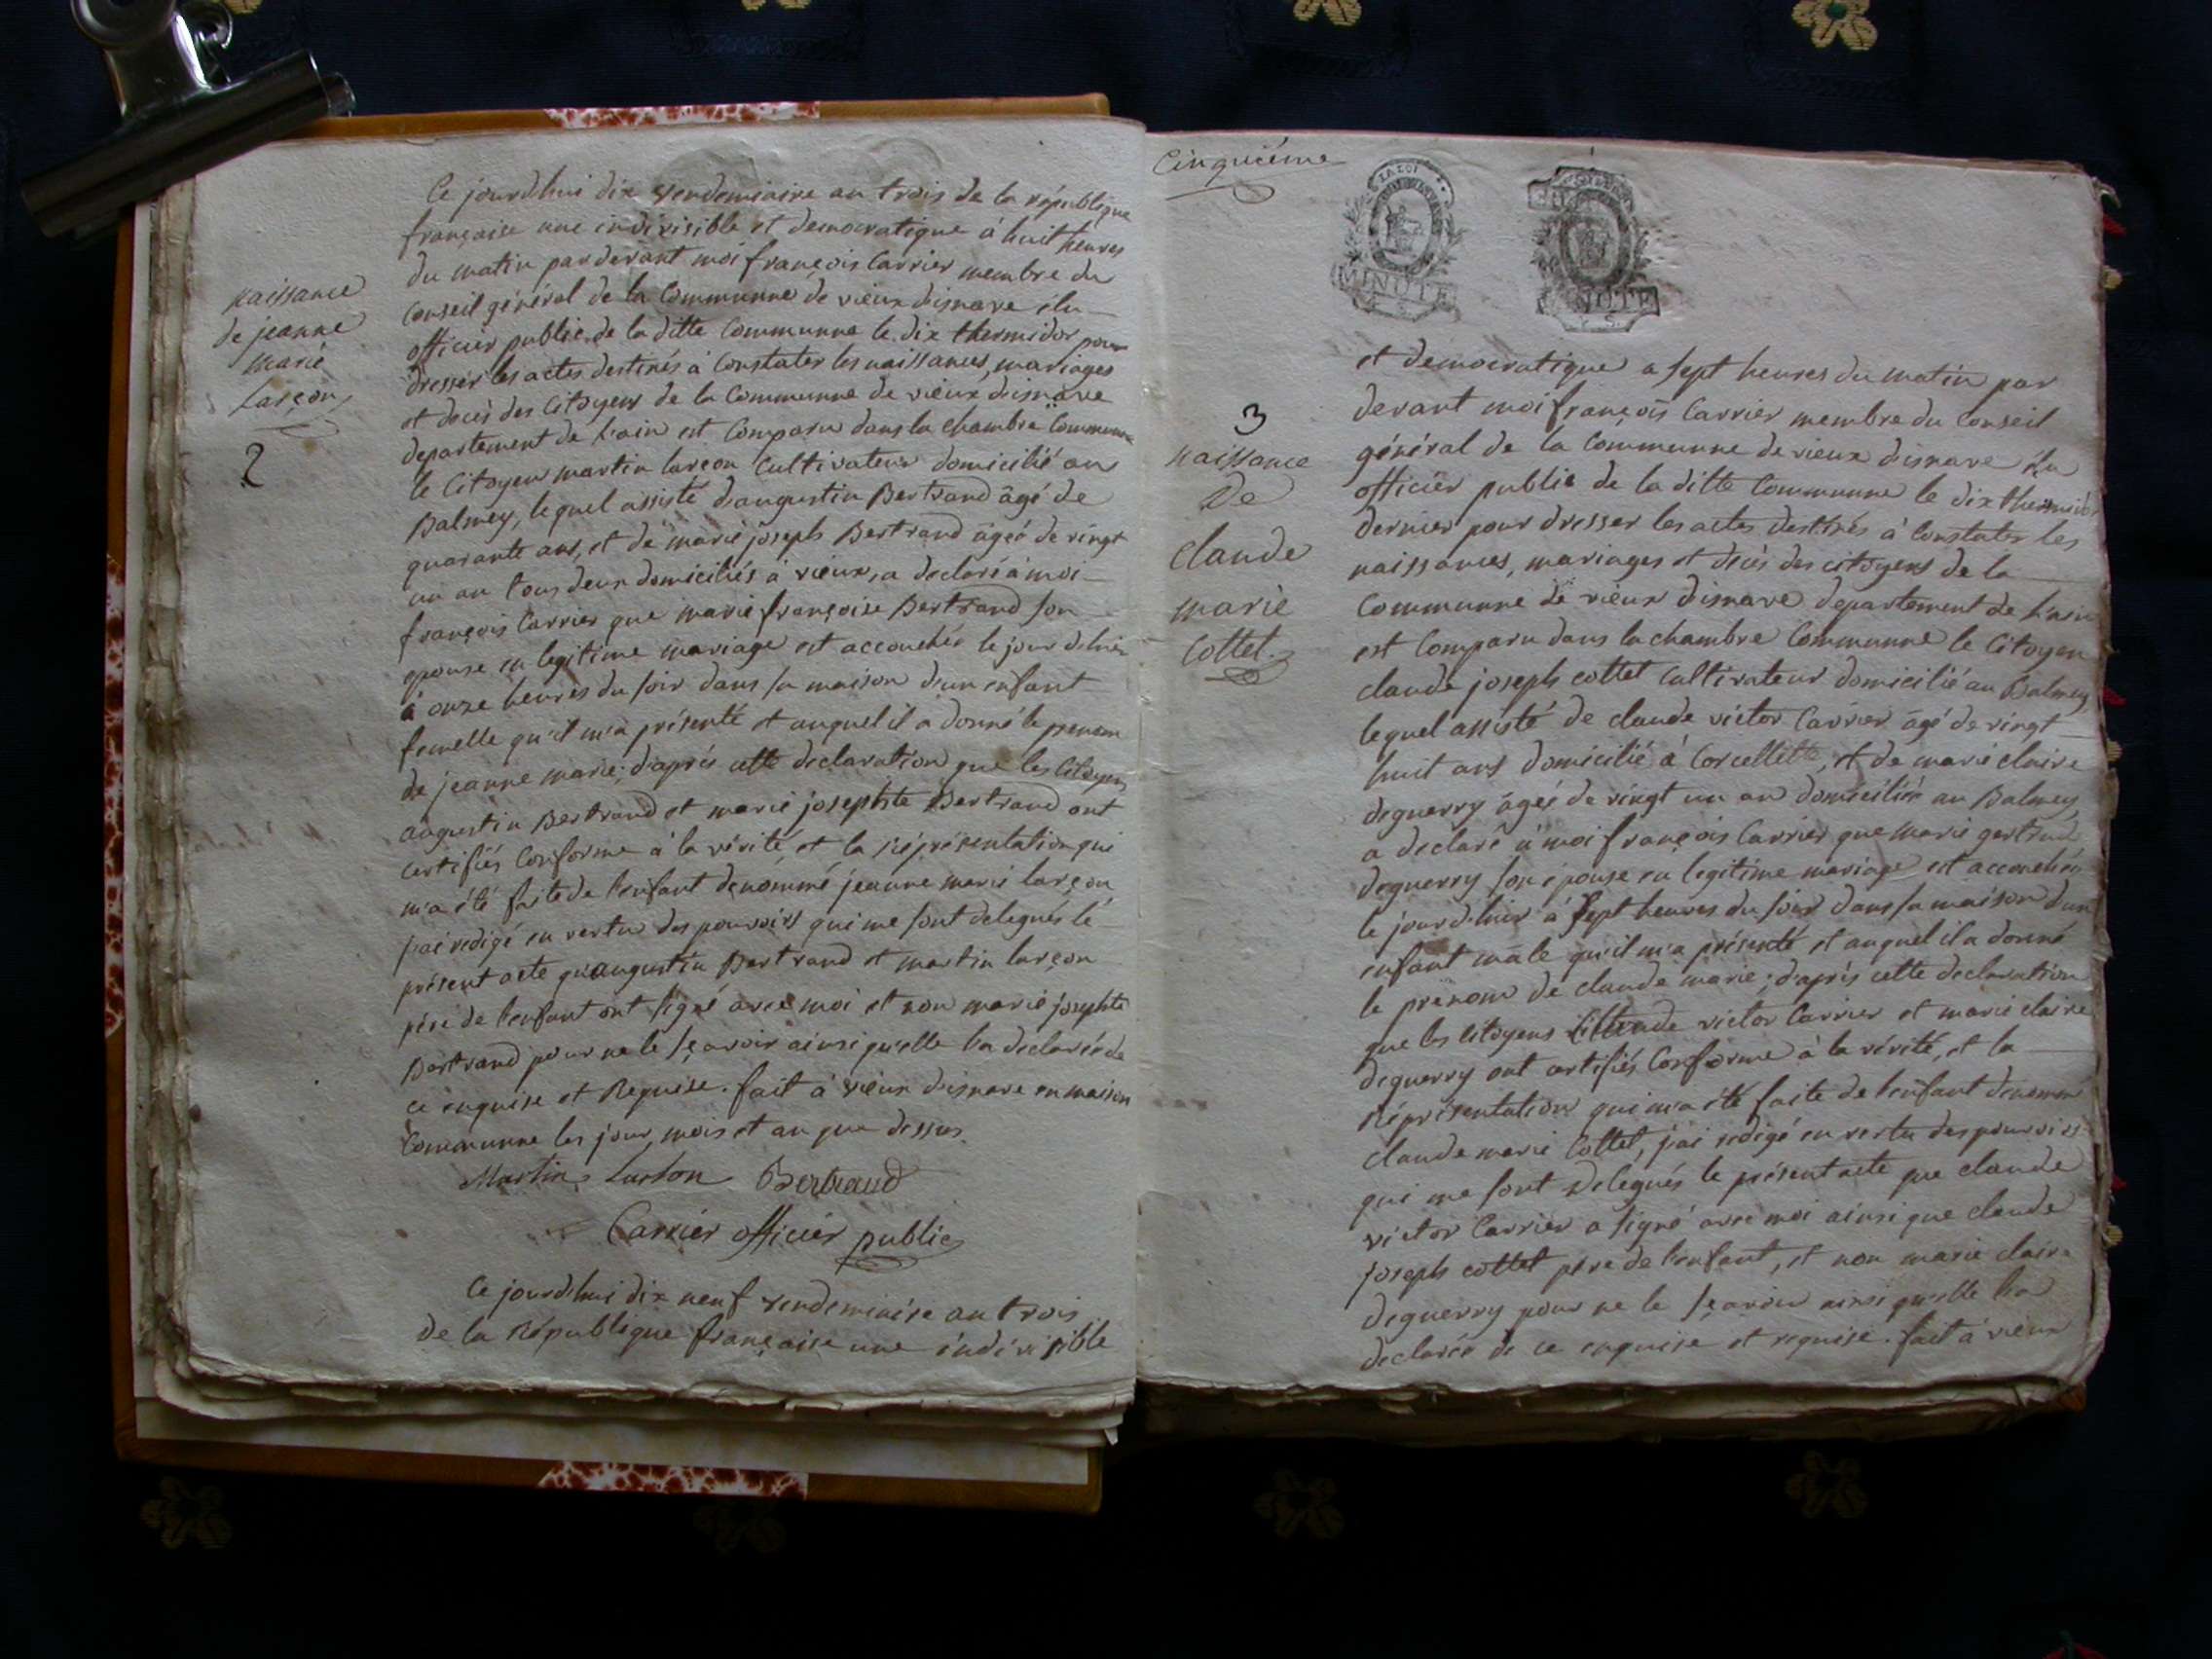 naissance
de jeanne
marie
Larçon
2
Ce jourdhui dix vendemiaire an trois de la république
françoise une indivisible et democratique à huit heures
du matin par devant moi françois Carrier membre du
Conseil général de la Communne de vieux disnave élu
officier public de la ditte Communne le dix thermidor pour
dresser les actes destinés à Constater les naissances, mariages
et decès des Citoyens de la Communne de vieux disnave
departement de L'ain est Comparu dans la chambre Communne
le Citoyen martin larçon Cultivateur domicilié au
Balmey, lequel assisté d'augustin Bertrand âgé de
quarante ans, et de marie joseph Bertrand âgée de vingt
un an tous deux domiciliés à vieux, a declaré à moi
françois Carrier que marie françoise Bertrand son
epouse en legitime mariage est accouchée le jour d'hier
à onze heures du soir dans sa maison d'un enfant
femelle qu'il m'a présenté et auquel il a donné le prenom
de jeanne marie; d'après cette declaration que les Citoyens
augustin Bertrand et marie josephte Bertrand ont
certifiés Conforme à la vérité, et la réprésentation qui
m'a été faite de l'enfant denommé jeanne marie larçon
j'ai redigé en vertu des pouvoirs qui me sont delegués le
présent acte qu'augustin Bertrand et martin larçon
père de l'enfant ont signé avec moi et non marie josephte
Bertrand pour ne le sçavoir ainsi qu'elle l'a declarée de
ce enquise et Requise. fait à vieux disnave en maison
Communne les jour, mois et an que dessus.
Martin Larson Bertrand
Carrier officier public
Ce jourdhui dix neuf vendemiaire an trois
de la République françoise une indivisible
Cinquième
LA LOI
MINUTE
MINUTE
3
naissance
De
claude
marie
Cottet.
et democratique a sept heures du matin par
devant moi françois Carrier membre du Conseil
général de la Communne de vieux disnave élu
officier public de la ditte Communne le dix thermidor
dernier pour dresser les actes destinés à Constater les
naissances, mariages et decès des citoyens de la
Communne de vieux disnave departement de L'ain
est Comparu dans la chambre Communne le Citoyen
claude joseph cottet Cultivateur domicilié au Balmey
lequel assisté de claude victor Carrier âgé de vingt
huit ans domicilié à Corcellette, et de marie claire
deguerry âgée de vingt un an domiciliée au Balmey,
a declaré à moi françois Carrier que marie gertrude
deguerry son épouse en legitime mariage est accouchée
le jour d'hier à sept heures du soir dans sa maison d'un
enfant mâle qu'il m'a présenté et auquel il a donné
le prenom de claude marie; d'après cette declaration
que les citoyens claude victor Carrier et marie claire
deguerry ont certifiés Conforme à la vérité, et la
Réprésentation qui m'a été faite de l'enfant denommé
claude marie Cottet, j'ai redigé en vertu des pouvoirs
qui me sont delegués le présent acte que claude
victor Carrier a signé avec moi ainsi que claude
joseph cottet père de l'enfant, et non marie claire
deguerry pour ne le sçavoir ainsi qu'elle l'a
declarée de ce enquise et requise. fait à vieux